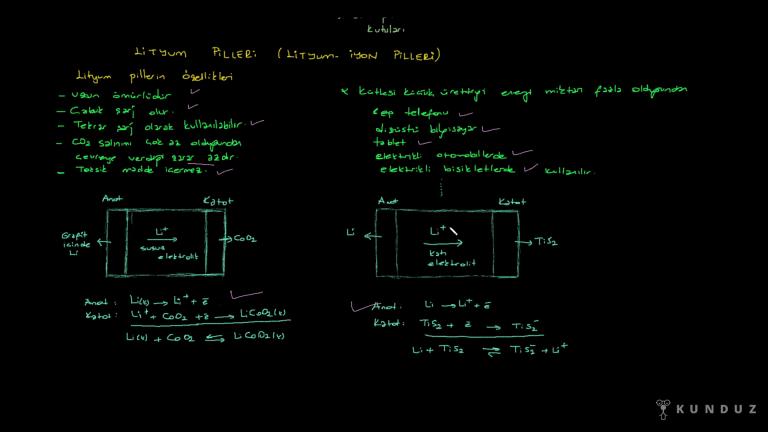 kutuları
LİTYUM PİLLERİ (LİTYUM-İYON PİLLERİ)
Lityum pillerin özellikleri
- Uzun ömürlüdür
- Çabuk şarj olur.
- Tekrar şarj olarak kullanılabilir.
- CO2 salınımı çok az olduğundan
çevreye verdiği zarar azdır.
- Toksik madde içermez.
* Kütlesi küçük ürettiği enerji miktarı fazla olduğundan
cep telefonu
dizüstü bilgisayar
tablet
elektrikli otomobillerde
elektrikli bisikletlerde kullanılır.
Anot Katot
Grafit içinde Li
Li+
susuz elektrolit
CoO2
Anot: Li(k) → Li+ + e-
Katot: Li+ + CoO2 + e- → LiCoO2(k)
Li(k) + CoO2 ⇌ LiCoO2(k)
Anot Katot
Li
Li+
katı elektrolit
TiS2
Anot: Li → Li+ + e-
Katot: TiS2 + e- → TiS2-
Li + TiS2 ⇌ TiS2- + Li+
KUNDUZ